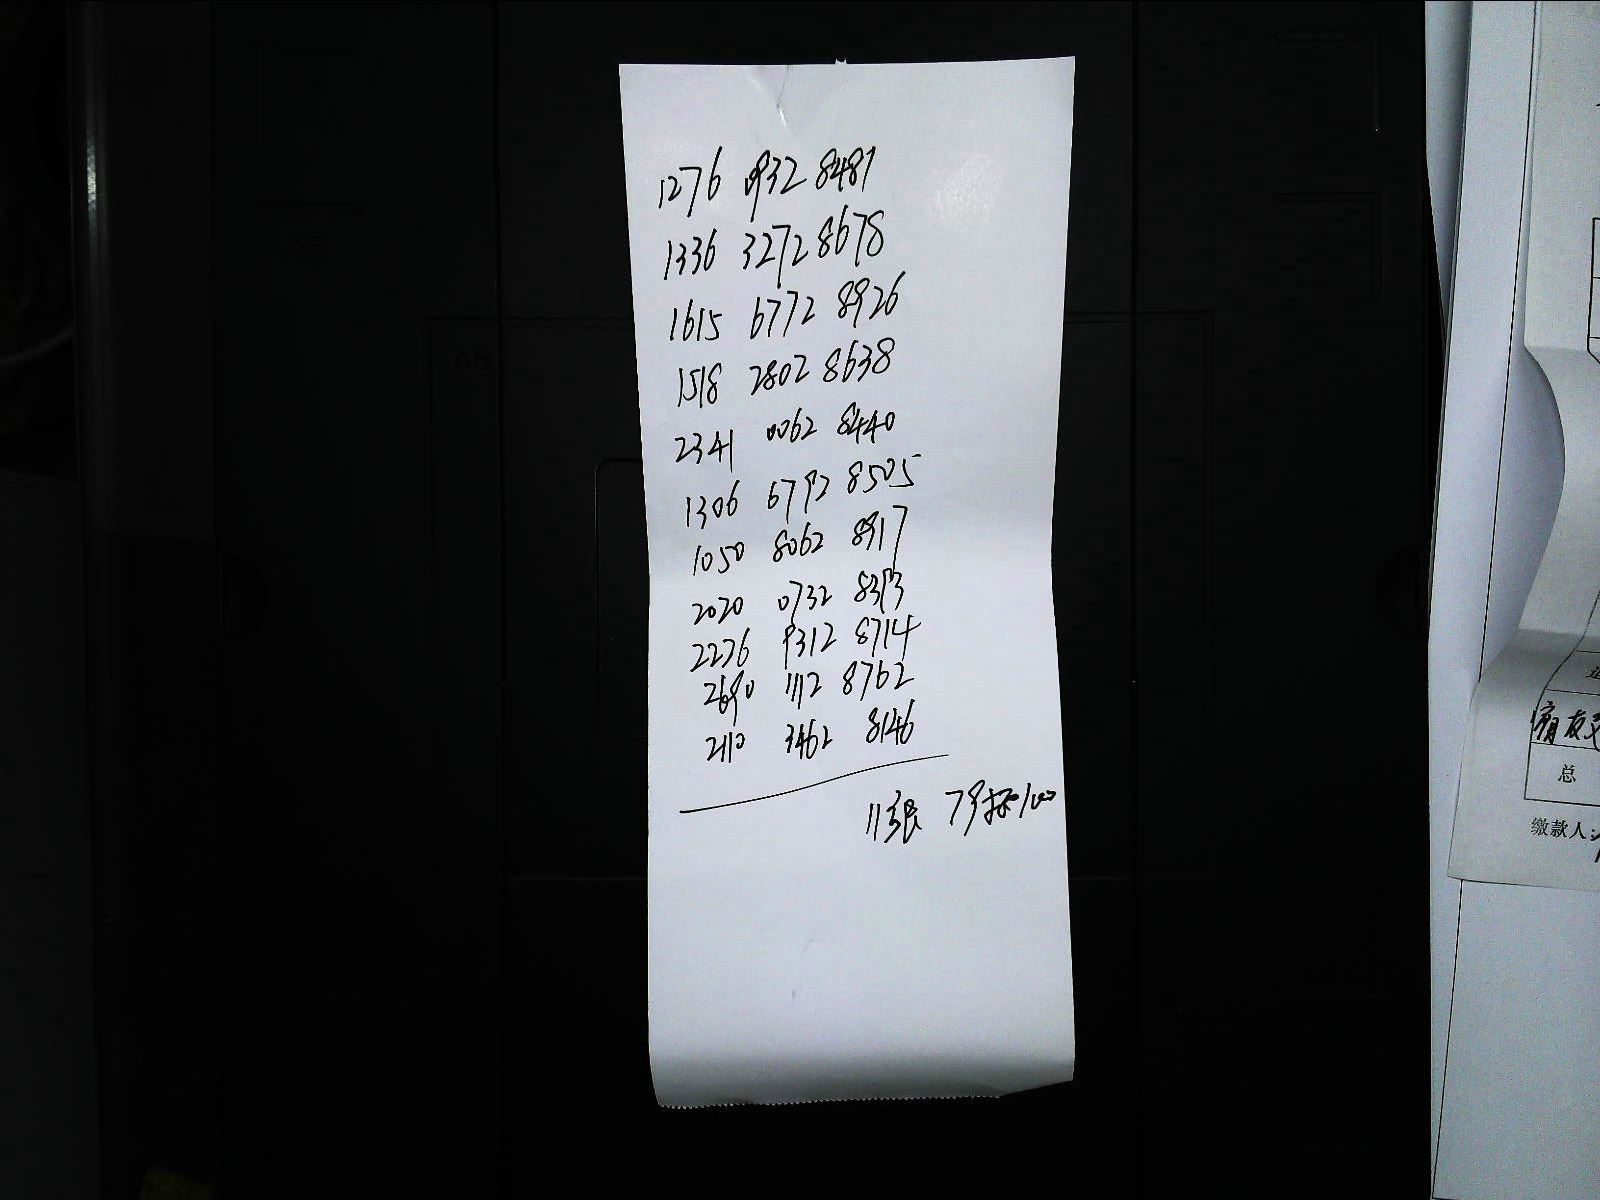 1276 0932 8481
1336 3272 8678
1615 6772 8926
1518 2802 8638
2341 0062 8440
1306 6792 8505
1050 8062 8917
2020 0732 8373
2276 9312 8714
2690 1112 8762
2110 3462 8146
11张 7号 100
总
缴款人